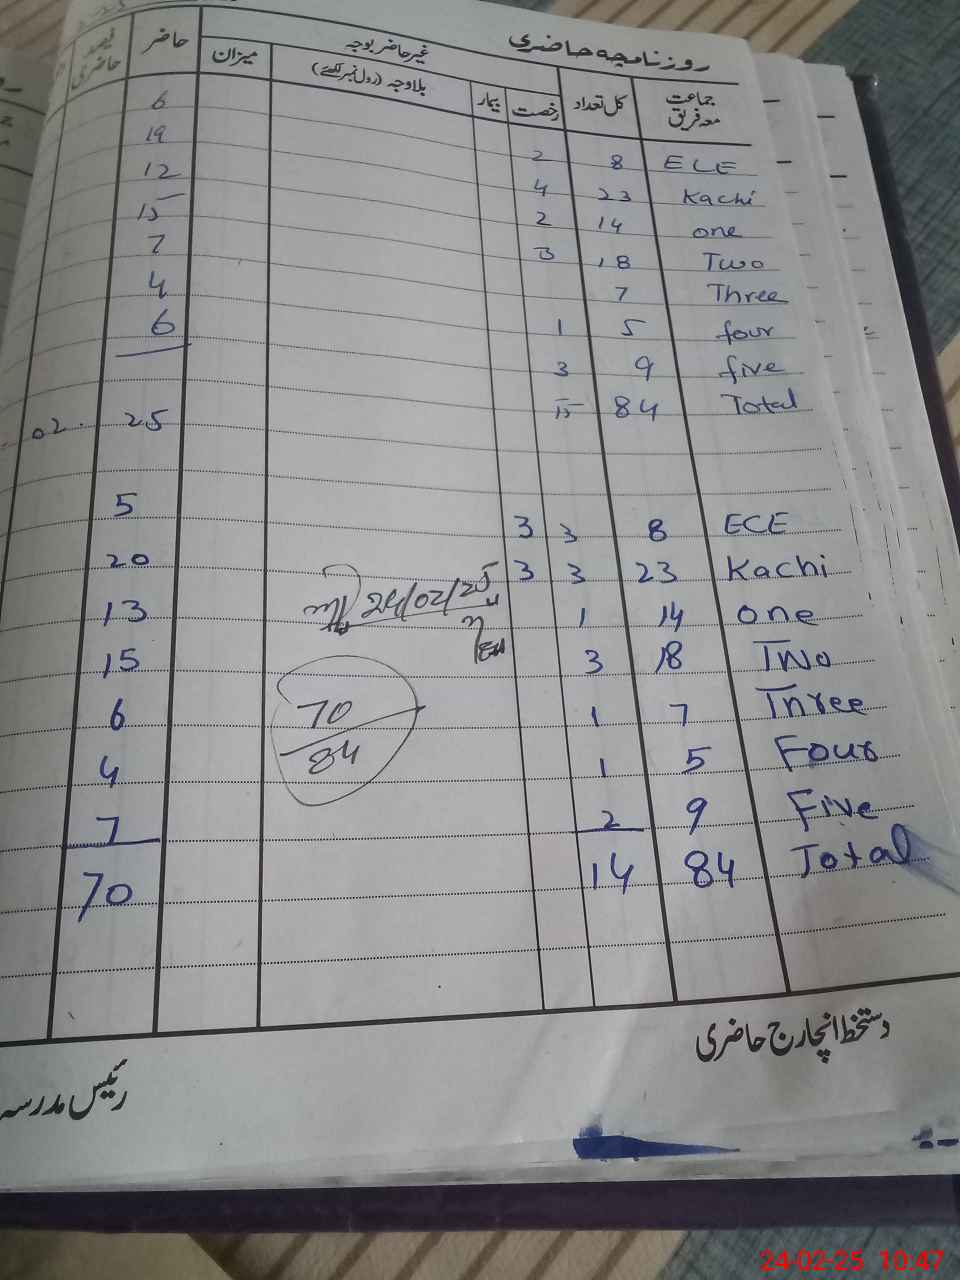 روزنامچہ حاضری
جماعت معہ فریق کل تعداد غیر حاضر بوجہ میزان حاضر فیصد حاضری
رخصت بیمار بلاوجہ (رول نمبر لکھئے)
ECE 8 2 6
Kachi 23 4 19
one 14 2 12
Two 18 3 15
Three 7 7
four 5 1 4
five 9 3 6
Total 84 15
25 02.
ECE 8 3 3 5
Kachi 23 3 3 20
one 14 1 13
24/02/25
Two 18 3 15
Three 7 1 6
70
84
Four 5 1 4
Five 9 2 7
Total 84 14 70
دستخط انچارج حاضری
رئیس مدرسہ
24-02-25 10:47